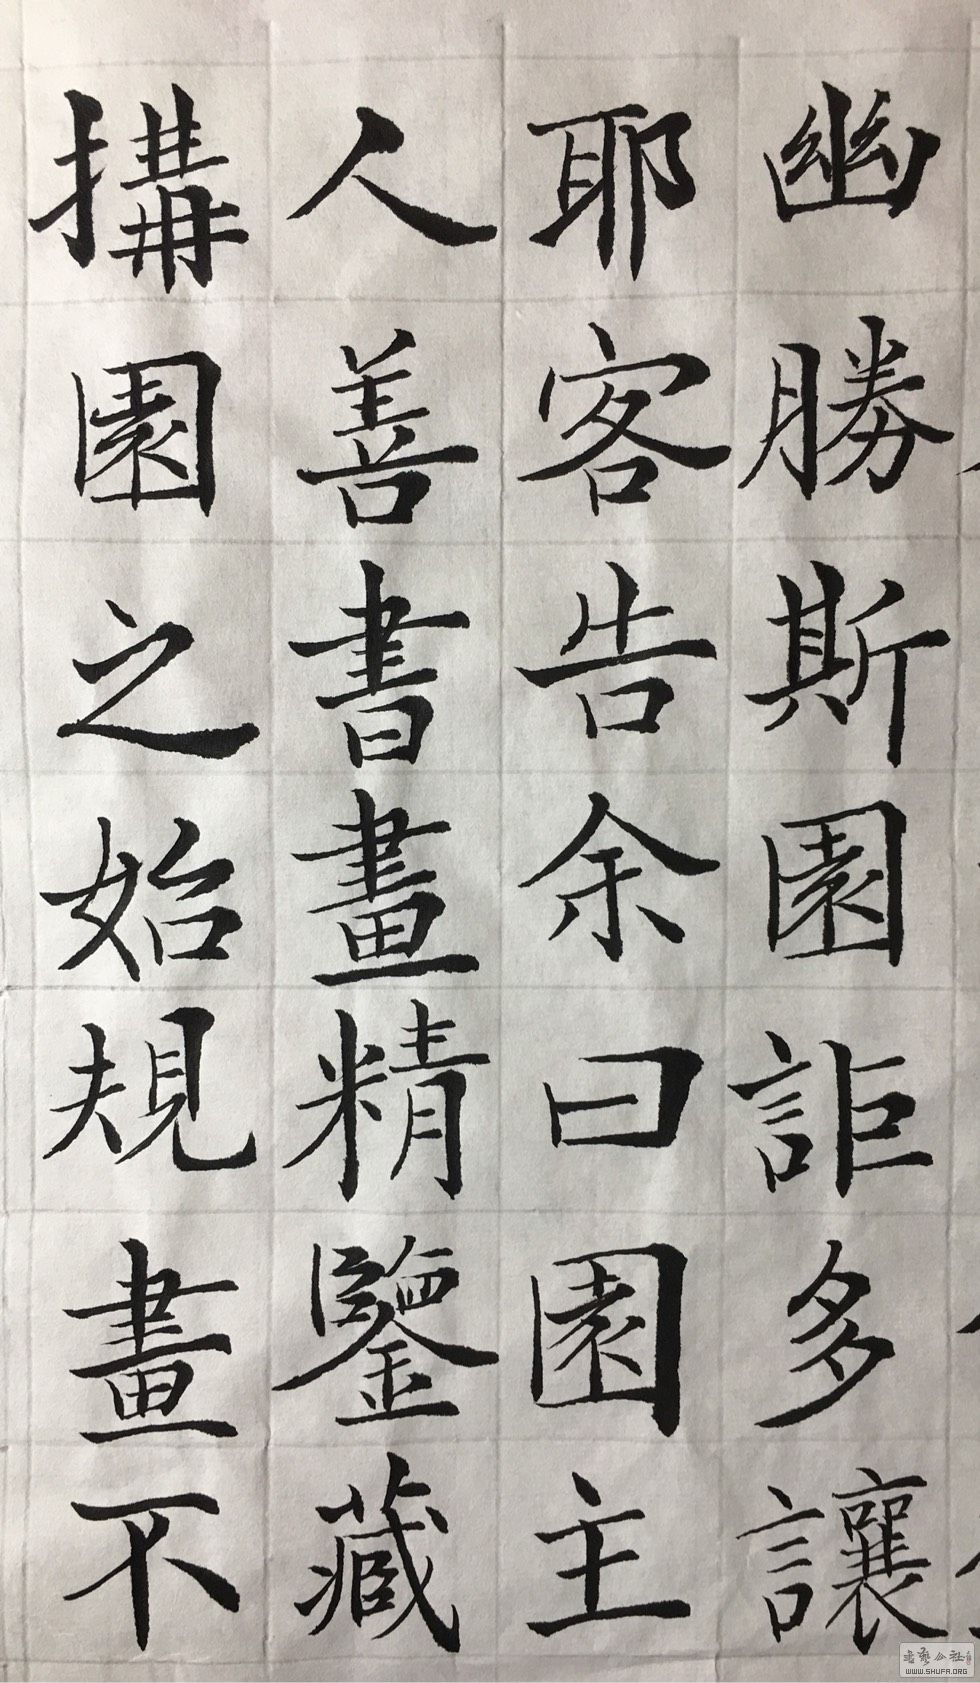 幽勝斯園詎多讓
耶客告余曰園主
人善書畫精鑒藏
搆園之始規畫不
WWW.SHUFA.ORG